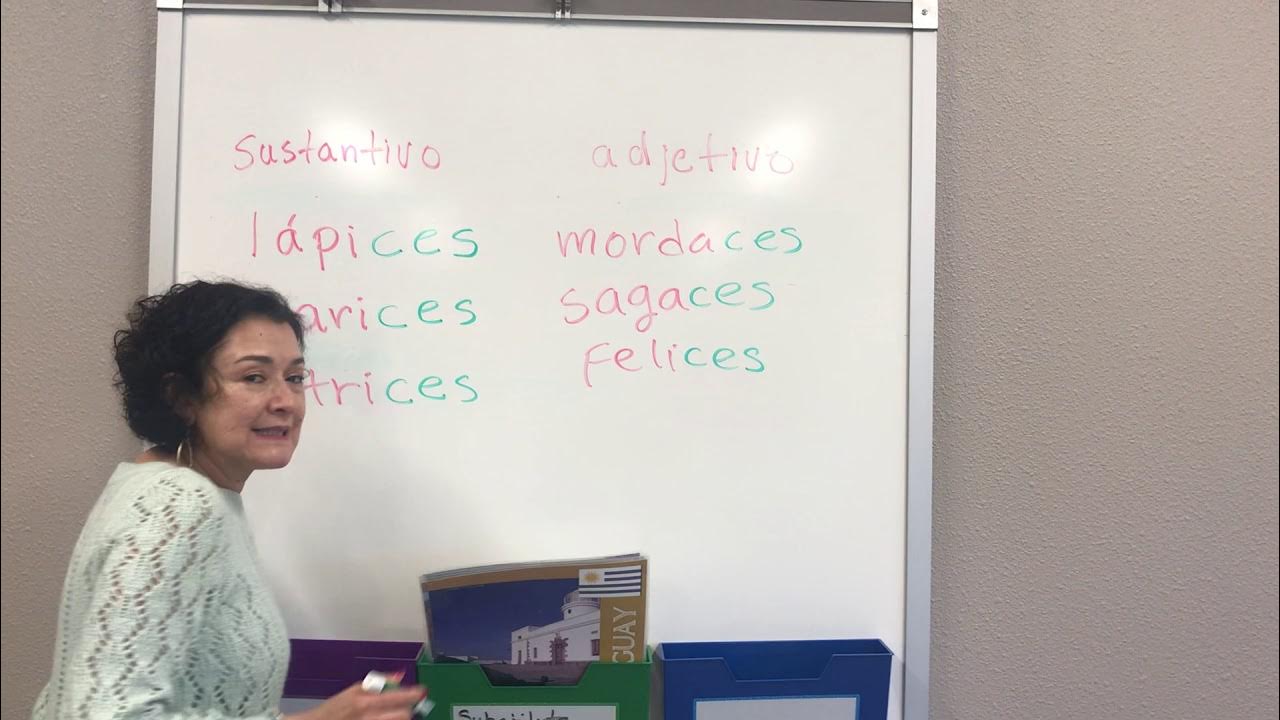 sustantivo adjetivo
lápices mordaces
arices sagaces
trices felices
GUAY